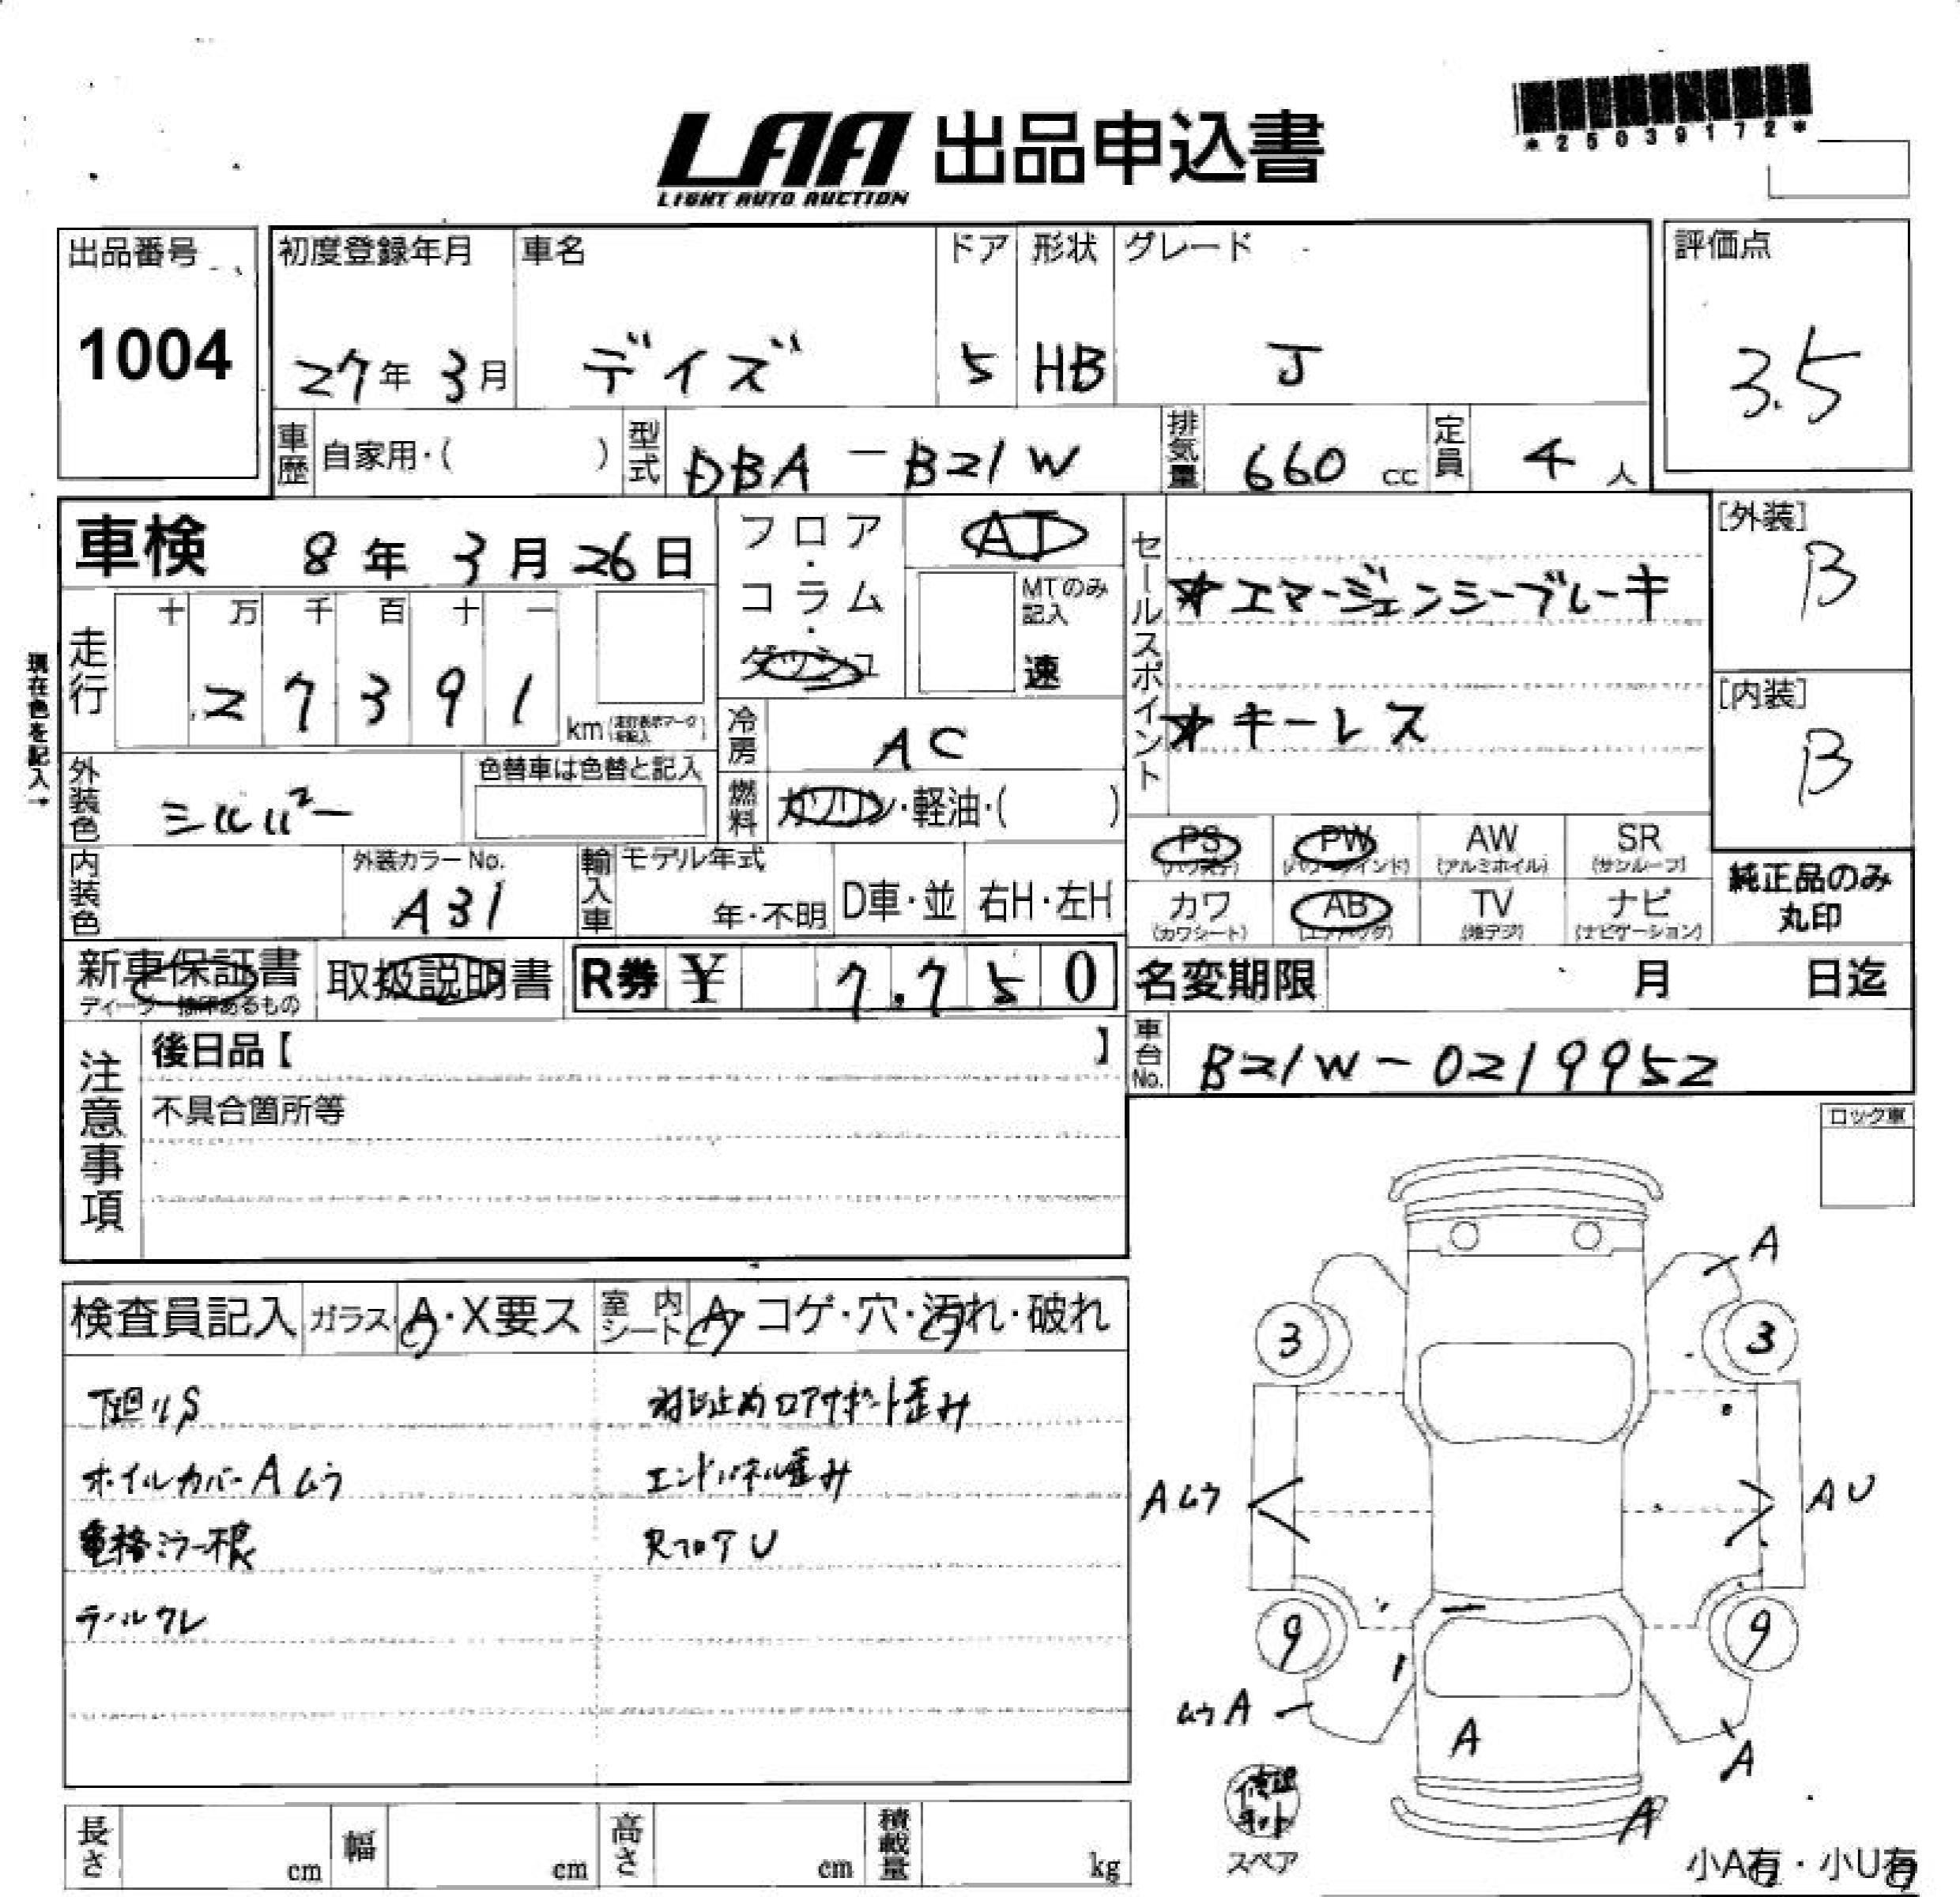 *25039172*
LAA 出品申込書
LIGHT AUTO AUCTION
出品番号
1004
初度登録年月
27年 3月
車名
デイズ
ドア
5
形状
HB
グレード
J
評価点
3.5
車歴 自家用・( )
型式 DBA-B21W
排気量 660 cc
定員 4 人
車検 8年 3月 26日
フロア・コラム・ダッシュ
AT
MTのみ記入
速
セールスポイント
★エマージェンシーブレーキ
★キーレス
[外装]
B
[内装]
B
現在色を記入→
走行
十 万 千 百 十 一
2 7 3 9 1
km
冷房 AC
外装色 シルバー
色替車は色替と記入
燃料 ガソリン・軽油・( )
内装色
外装カラーNo.
A31
輸入車
モデル年式
年・不明
D車・並
右H・左H
PS
PW
AW
(アルミホイル)
SR
(サンルーフ)
カワ
(カワシート)
AB
(エアバッグ)
TV
(地デジ)
ナビ
(ナビゲーション)
純正品のみ
丸印
新車保証書
取扱説明書
R券 ¥ 7.750
名変期限 月 日迄
車台No. B21W-0219952
注意事項
後日品【 】
不具合箇所等
ロック車
検査員記入
ガラス A・X要ス
室内シート A・コゲ・穴・汚れ・破れ
下廻りS
ホイルカバーAムラ
電格ミラー根
テールワレ
コアサポート歪み
エンドパネル歪み
RフロアU
A
3
3
Aムラ
AU
9
9
ムラA
A
A
A
スペア
小A有・小U有
長さ cm
幅 cm
高さ cm
積載量 kg